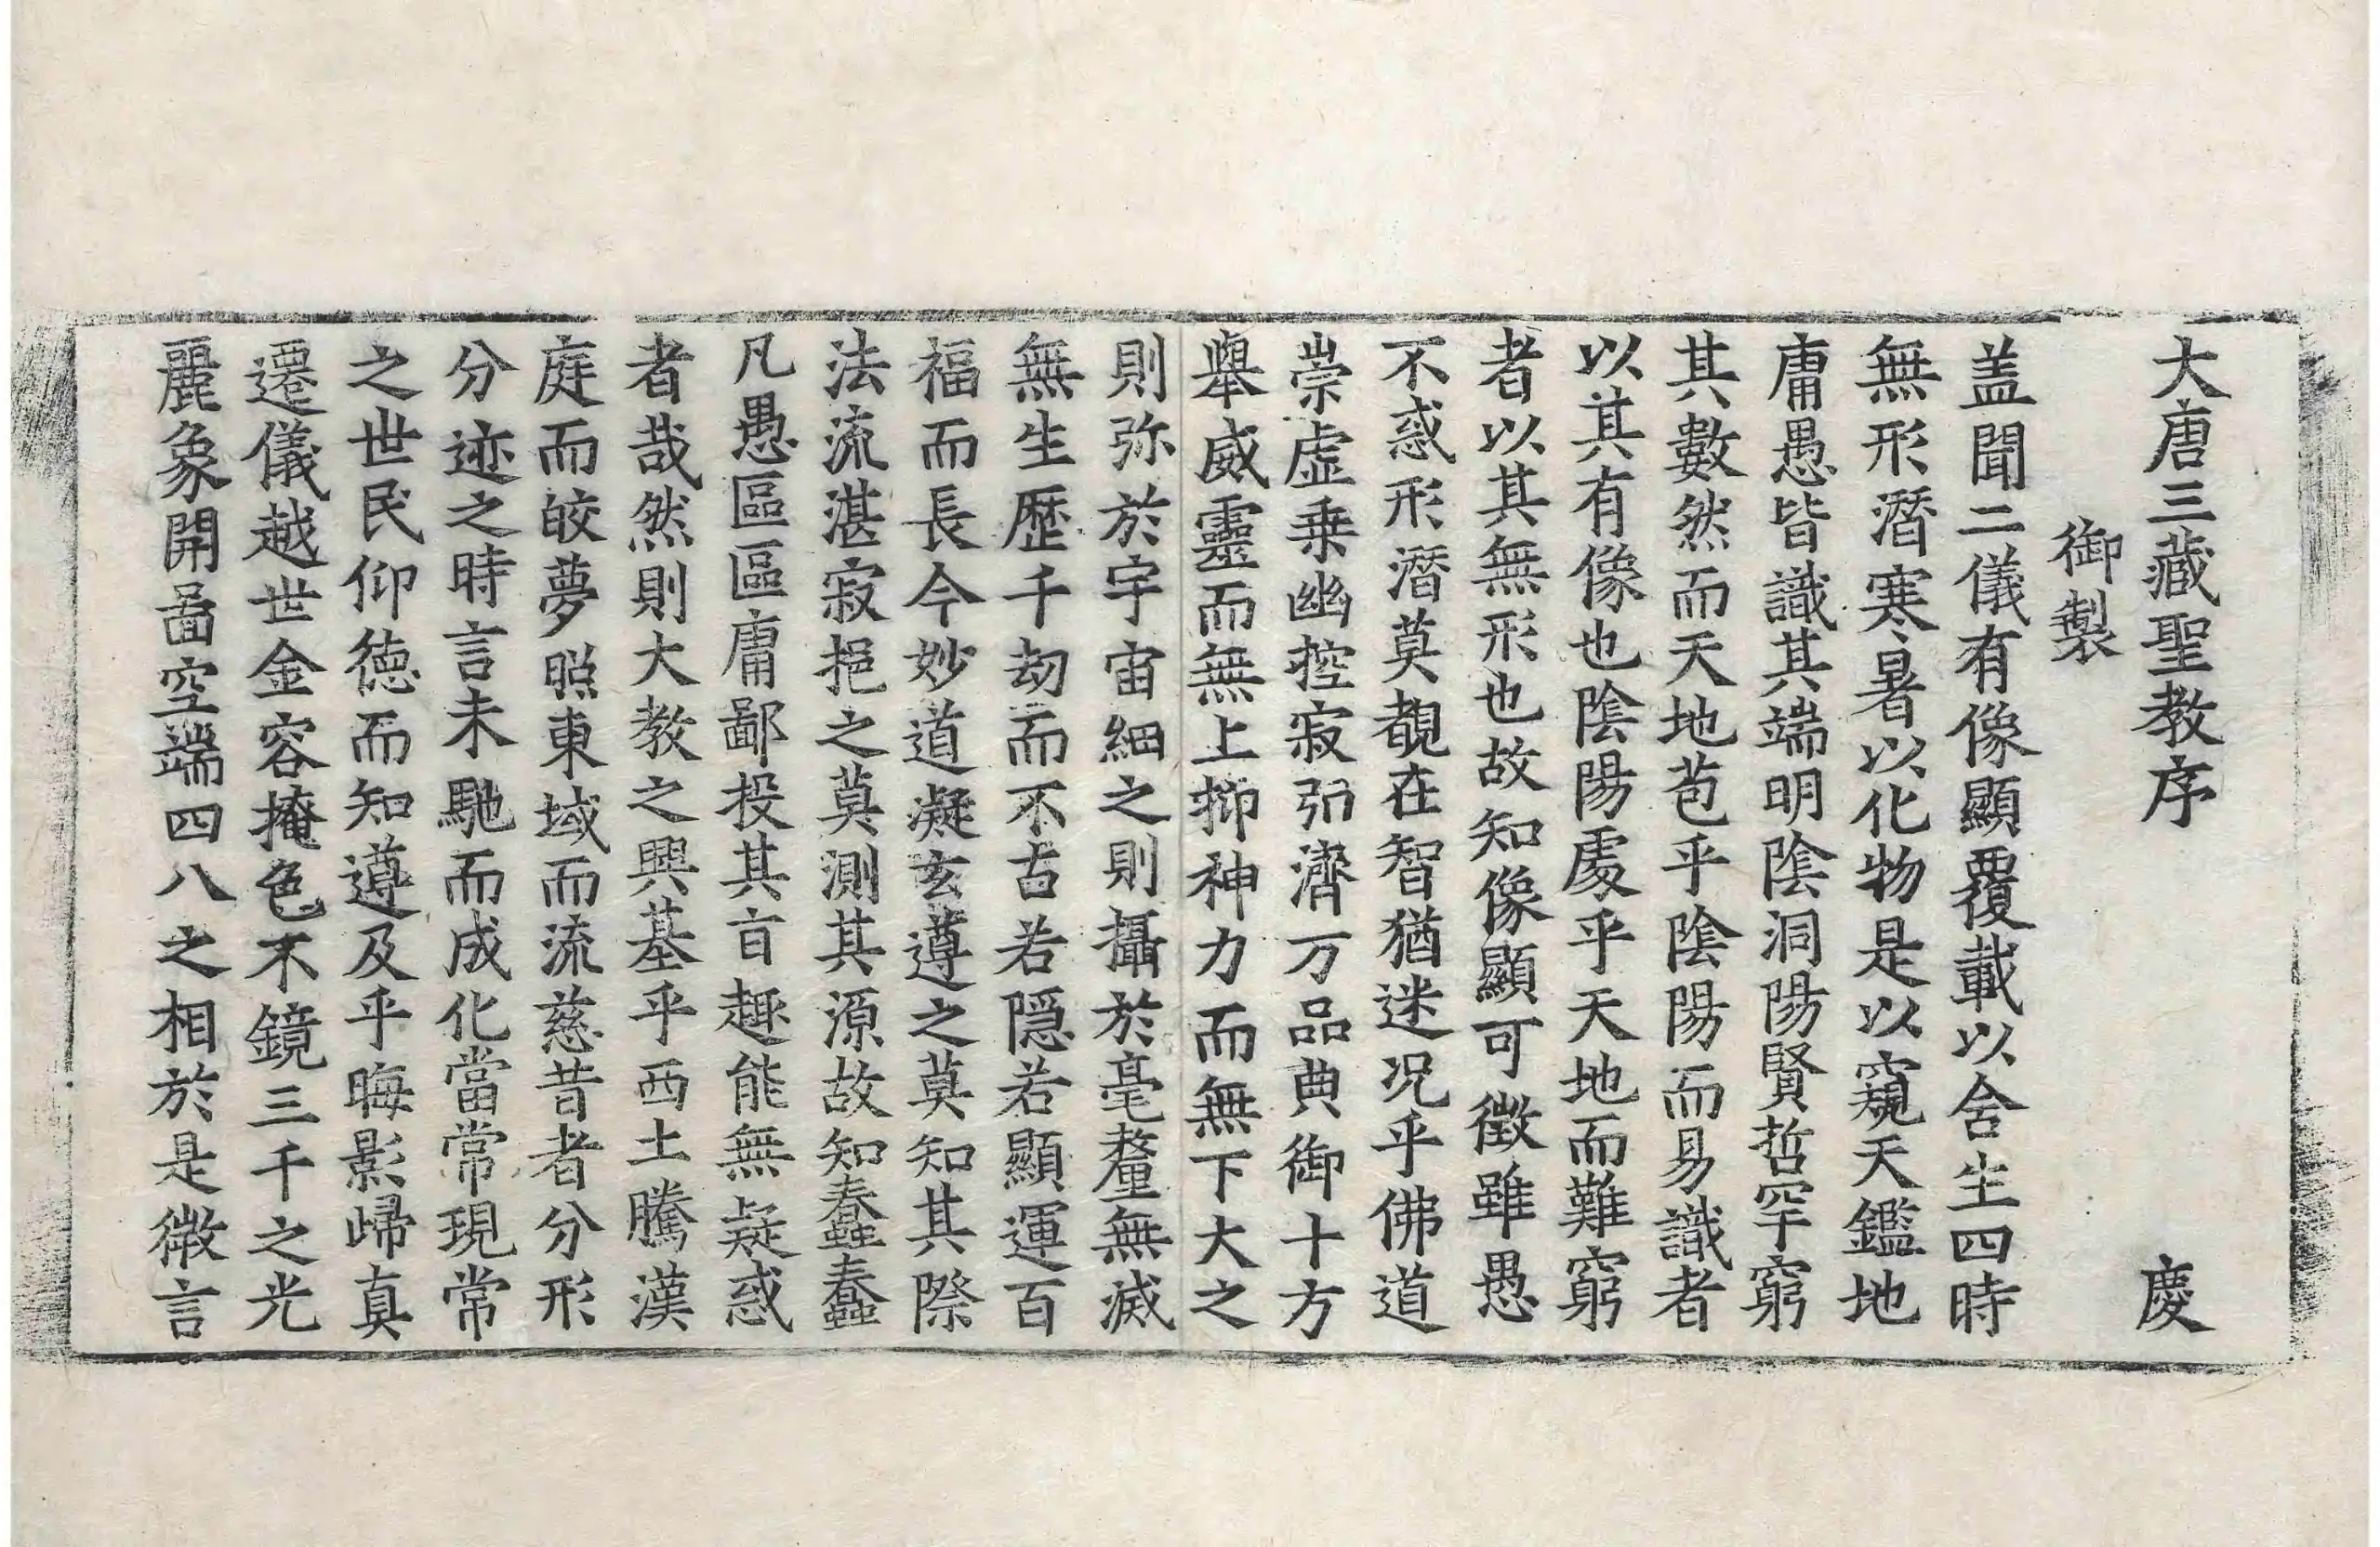 大唐三藏聖教序 慶
御製
盖聞二儀有像顯覆載以含生四時
無形潛寒暑以化物是以窺天鑑地
庸愚皆識其端明陰洞陽賢哲罕窮
其數然而天地苞乎陰陽而易識者
以其有像也陰陽處乎天地而難窮
者以其無形也故知像顯可徵雖愚
不惑形潛莫覩在智猶迷况乎佛道
崇虛乘幽控寂引濟万品典御十方
舉威靈而無上抑神力而無下大之
則弥於宇宙細之則攝於毫釐無滅
無生歷千劫而不古若隱若顯運百
福而長今妙道凝玄遵之莫知其際
法流湛寂挹之莫測其源故知蠢蠢
凡愚區區庸鄙投其旨趣能無疑惑
者哉然則大教之興基乎西土騰漢
庭而皎夢照東域而流慈昔者分形
分迹之時言未馳而成化當常現常
之世民仰德而知遵及乎晦影歸真
遷儀越世金容掩色不鏡三千之光
麗象開啚空端四八之相於是微言